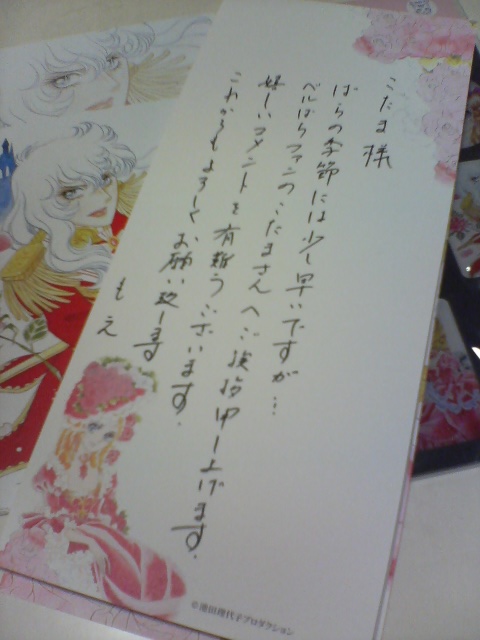 こだま様
ばらの季節には少し早いですが…
ベルばらファンのこだまさんへご挨拶申し上げます。
嬉しいコメントを有難うございます。
これからもよろしくお願い致します
もえ
©池田理代子プロダクション